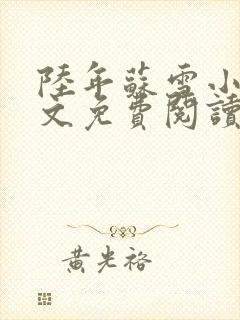 陸年蘇雪小
文免費閱讀
黃光裕